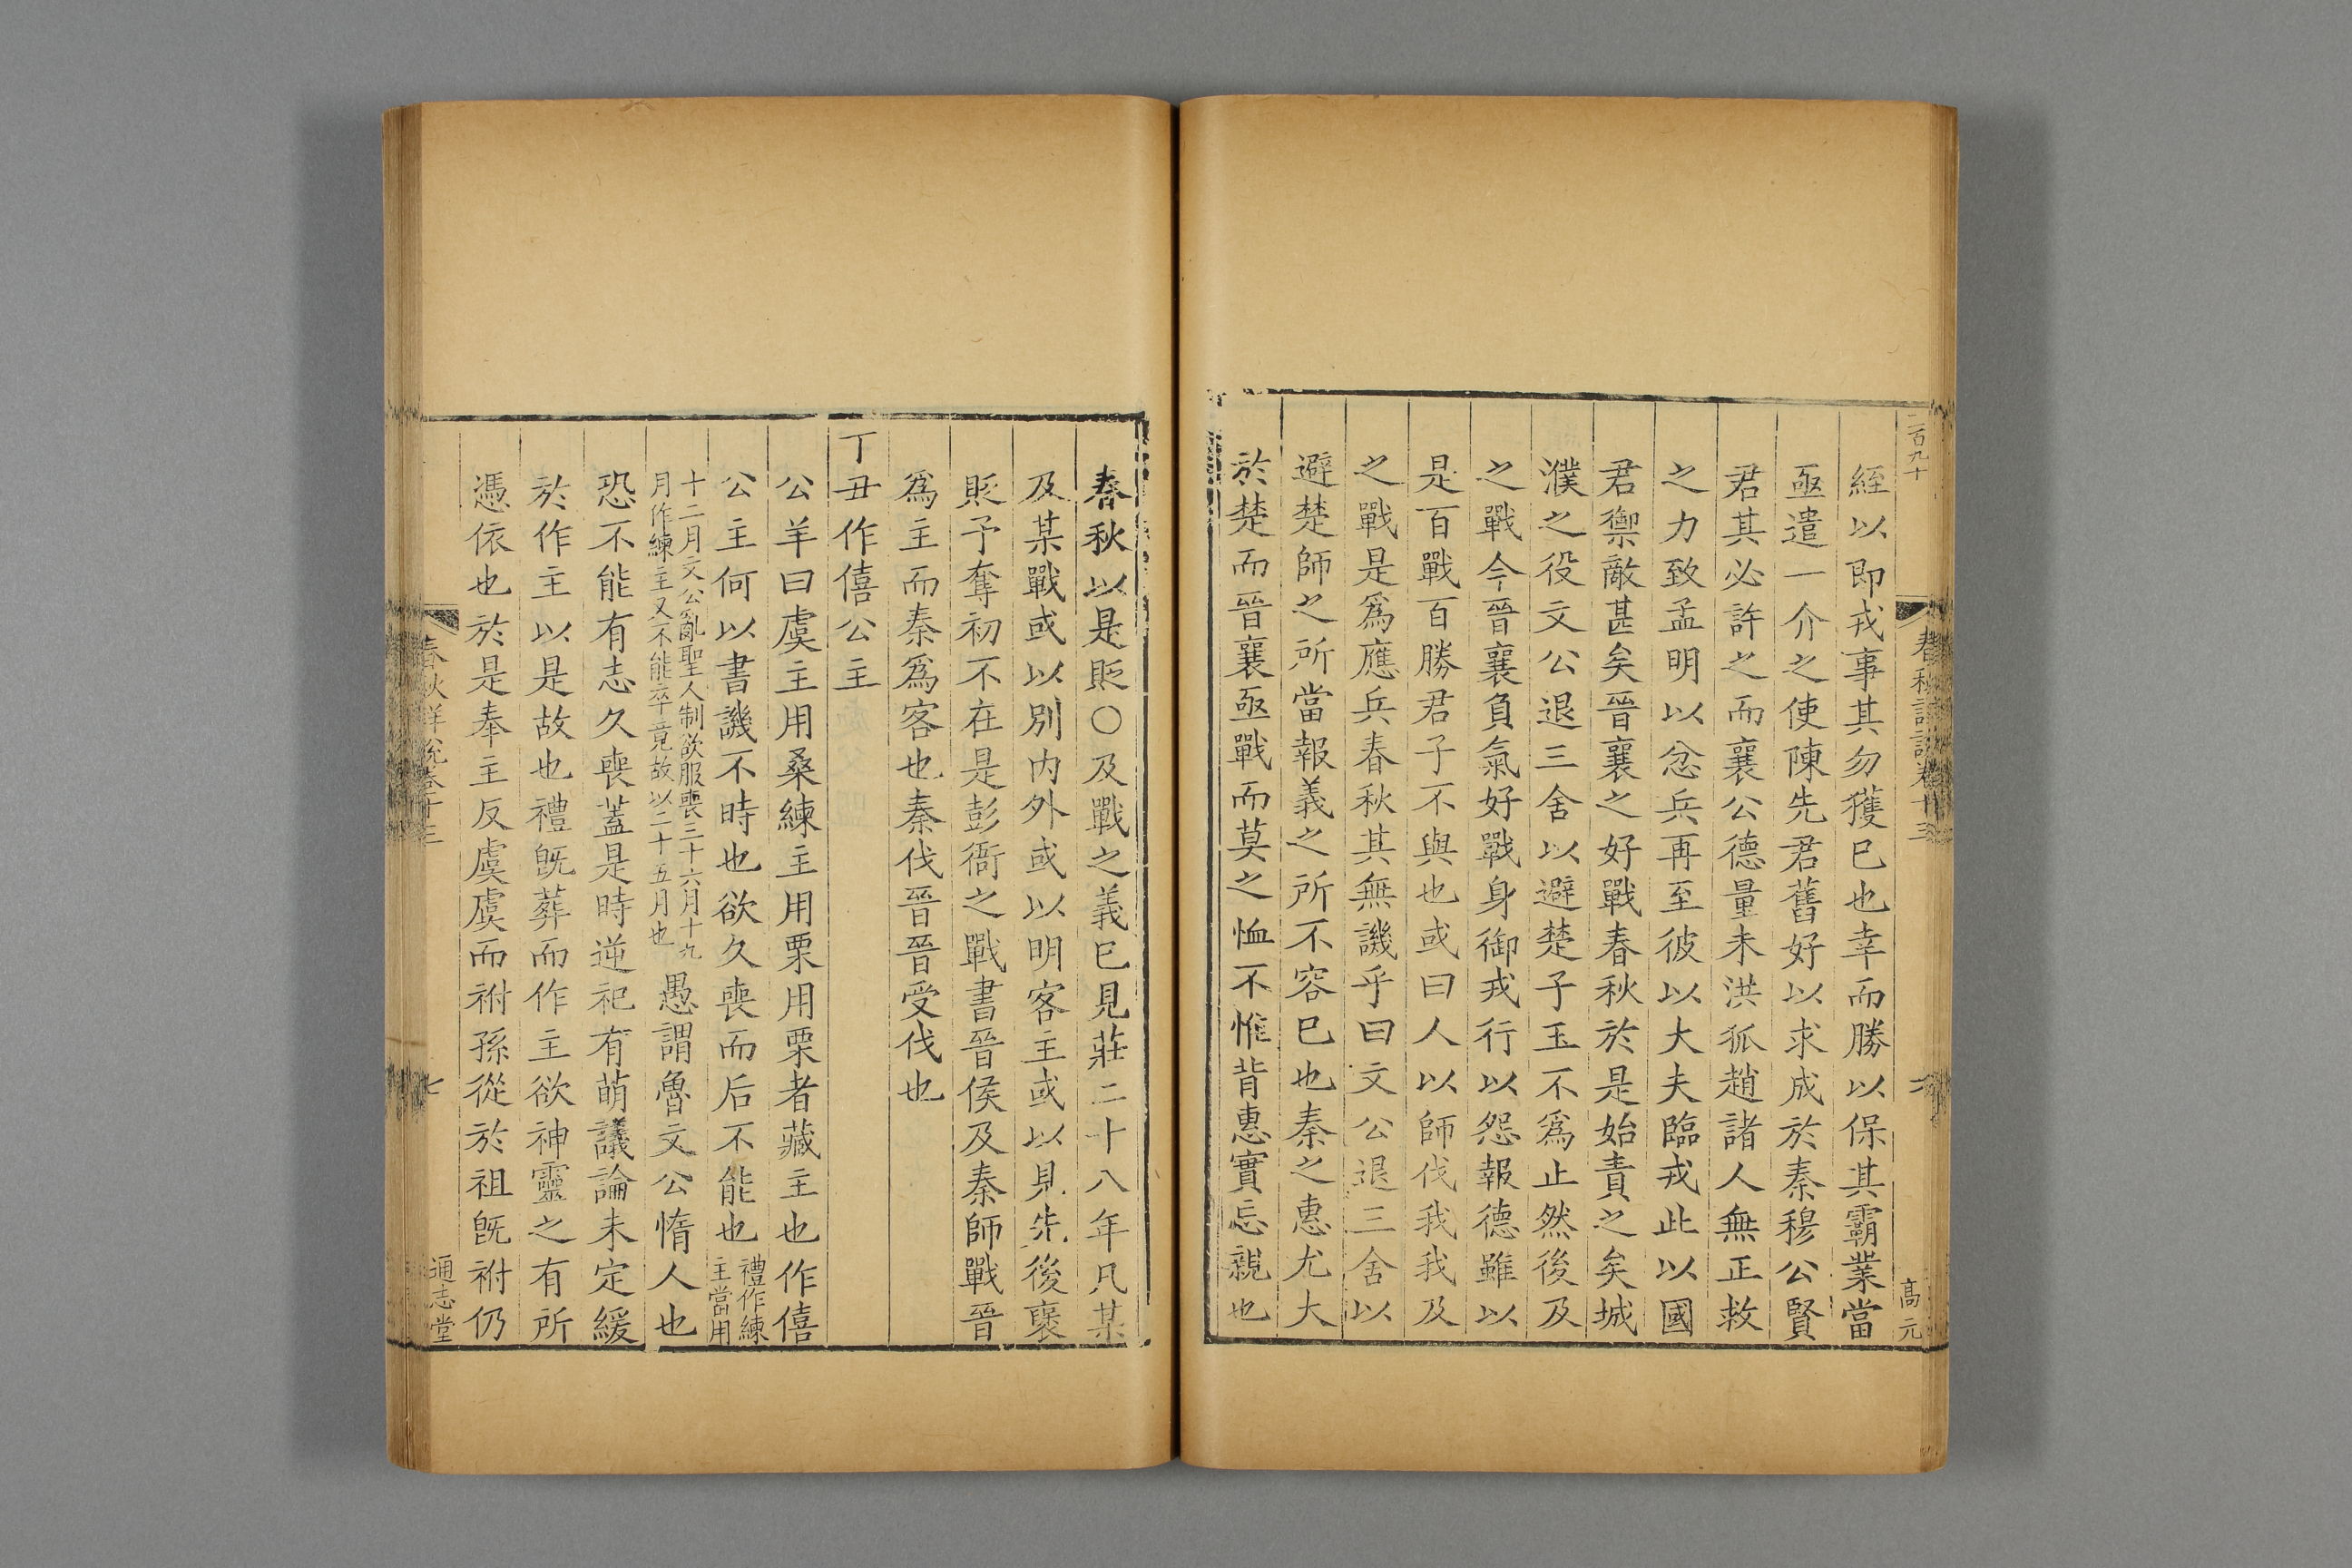 二百九十
春秋詳說卷十三
高元
絰以即戎事其勿獲已也幸而勝以保其霸業當
亟遣一介之使陳先君舊好以求成於秦穆公賢
君其必許之而襄公德量未洪狐趙諸人無正救
之力致孟明以忿兵再至彼以大夫臨戎此以國
君禦敵甚矣晉襄之好戰春秋於是始責之矣城
濮之役文公退三舍以避楚子玉不爲止然後及
之戰今晉襄負氣好戰身御戎行以怨報德雖以
是百戰百勝君子不與也或曰人以師伐我我及
之戰是爲應兵春秋其無譏乎曰文公退三舍以
避楚師之所當報義之所不容已也秦之惠尤大
於楚而晉襄亟戰而莫之恤不惟背惠實忘親也
春秋以是貶○及戰之義已見莊二十八年凡某
及某戰或以別内外或以明客主或以見先後褒
貶予奪初不在是彭衙之戰書晉侯及秦師戰晉
爲主而秦爲客也秦伐晉晉受伐也
丁丑作僖公主
公羊曰虞主用桑練主用栗用栗者藏主也作僖
公主何以書譏不時也欲久喪而后不能也禮作練主當用
十二月文公亂聖人制欲服喪三十六月十九月作練主又不能卒竟故以二十五月也愚謂魯文公惰人也
恐不能有志久喪蓋是時逆祀有萌議論未定緩
於作主以是故也禮旣葬而作主欲神靈之有所
憑依也於是奉主反虞虞而祔孫從於祖旣祔仍
春秋詳說卷十三
七
通志堂